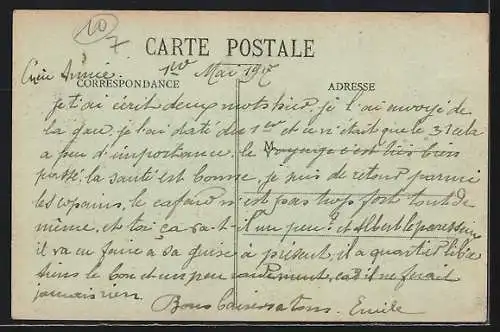 10
7
CARTE POSTALE
1er Mai 1917
CORRESPONDANCE
ADRESSE
je t'ai écrit deux mots hier, je l'ai envoyé de
la gare, je l'ai daté du 1er et ce n'était que le 31 cela
a peu d'importance. le voyage c'est très bien
M
passé. la santé est bonne, je suis de retour parmi
les copains, le cafard n'est pas trop fort tout de
même, et toi ça va-t-il un peu? et Albert le paresseux
il va en faire a sa guise à présent, il a quartier libre
dans le bois et un peu car il ne ferait
jamais rien.
Bons baisers a tous. Emile